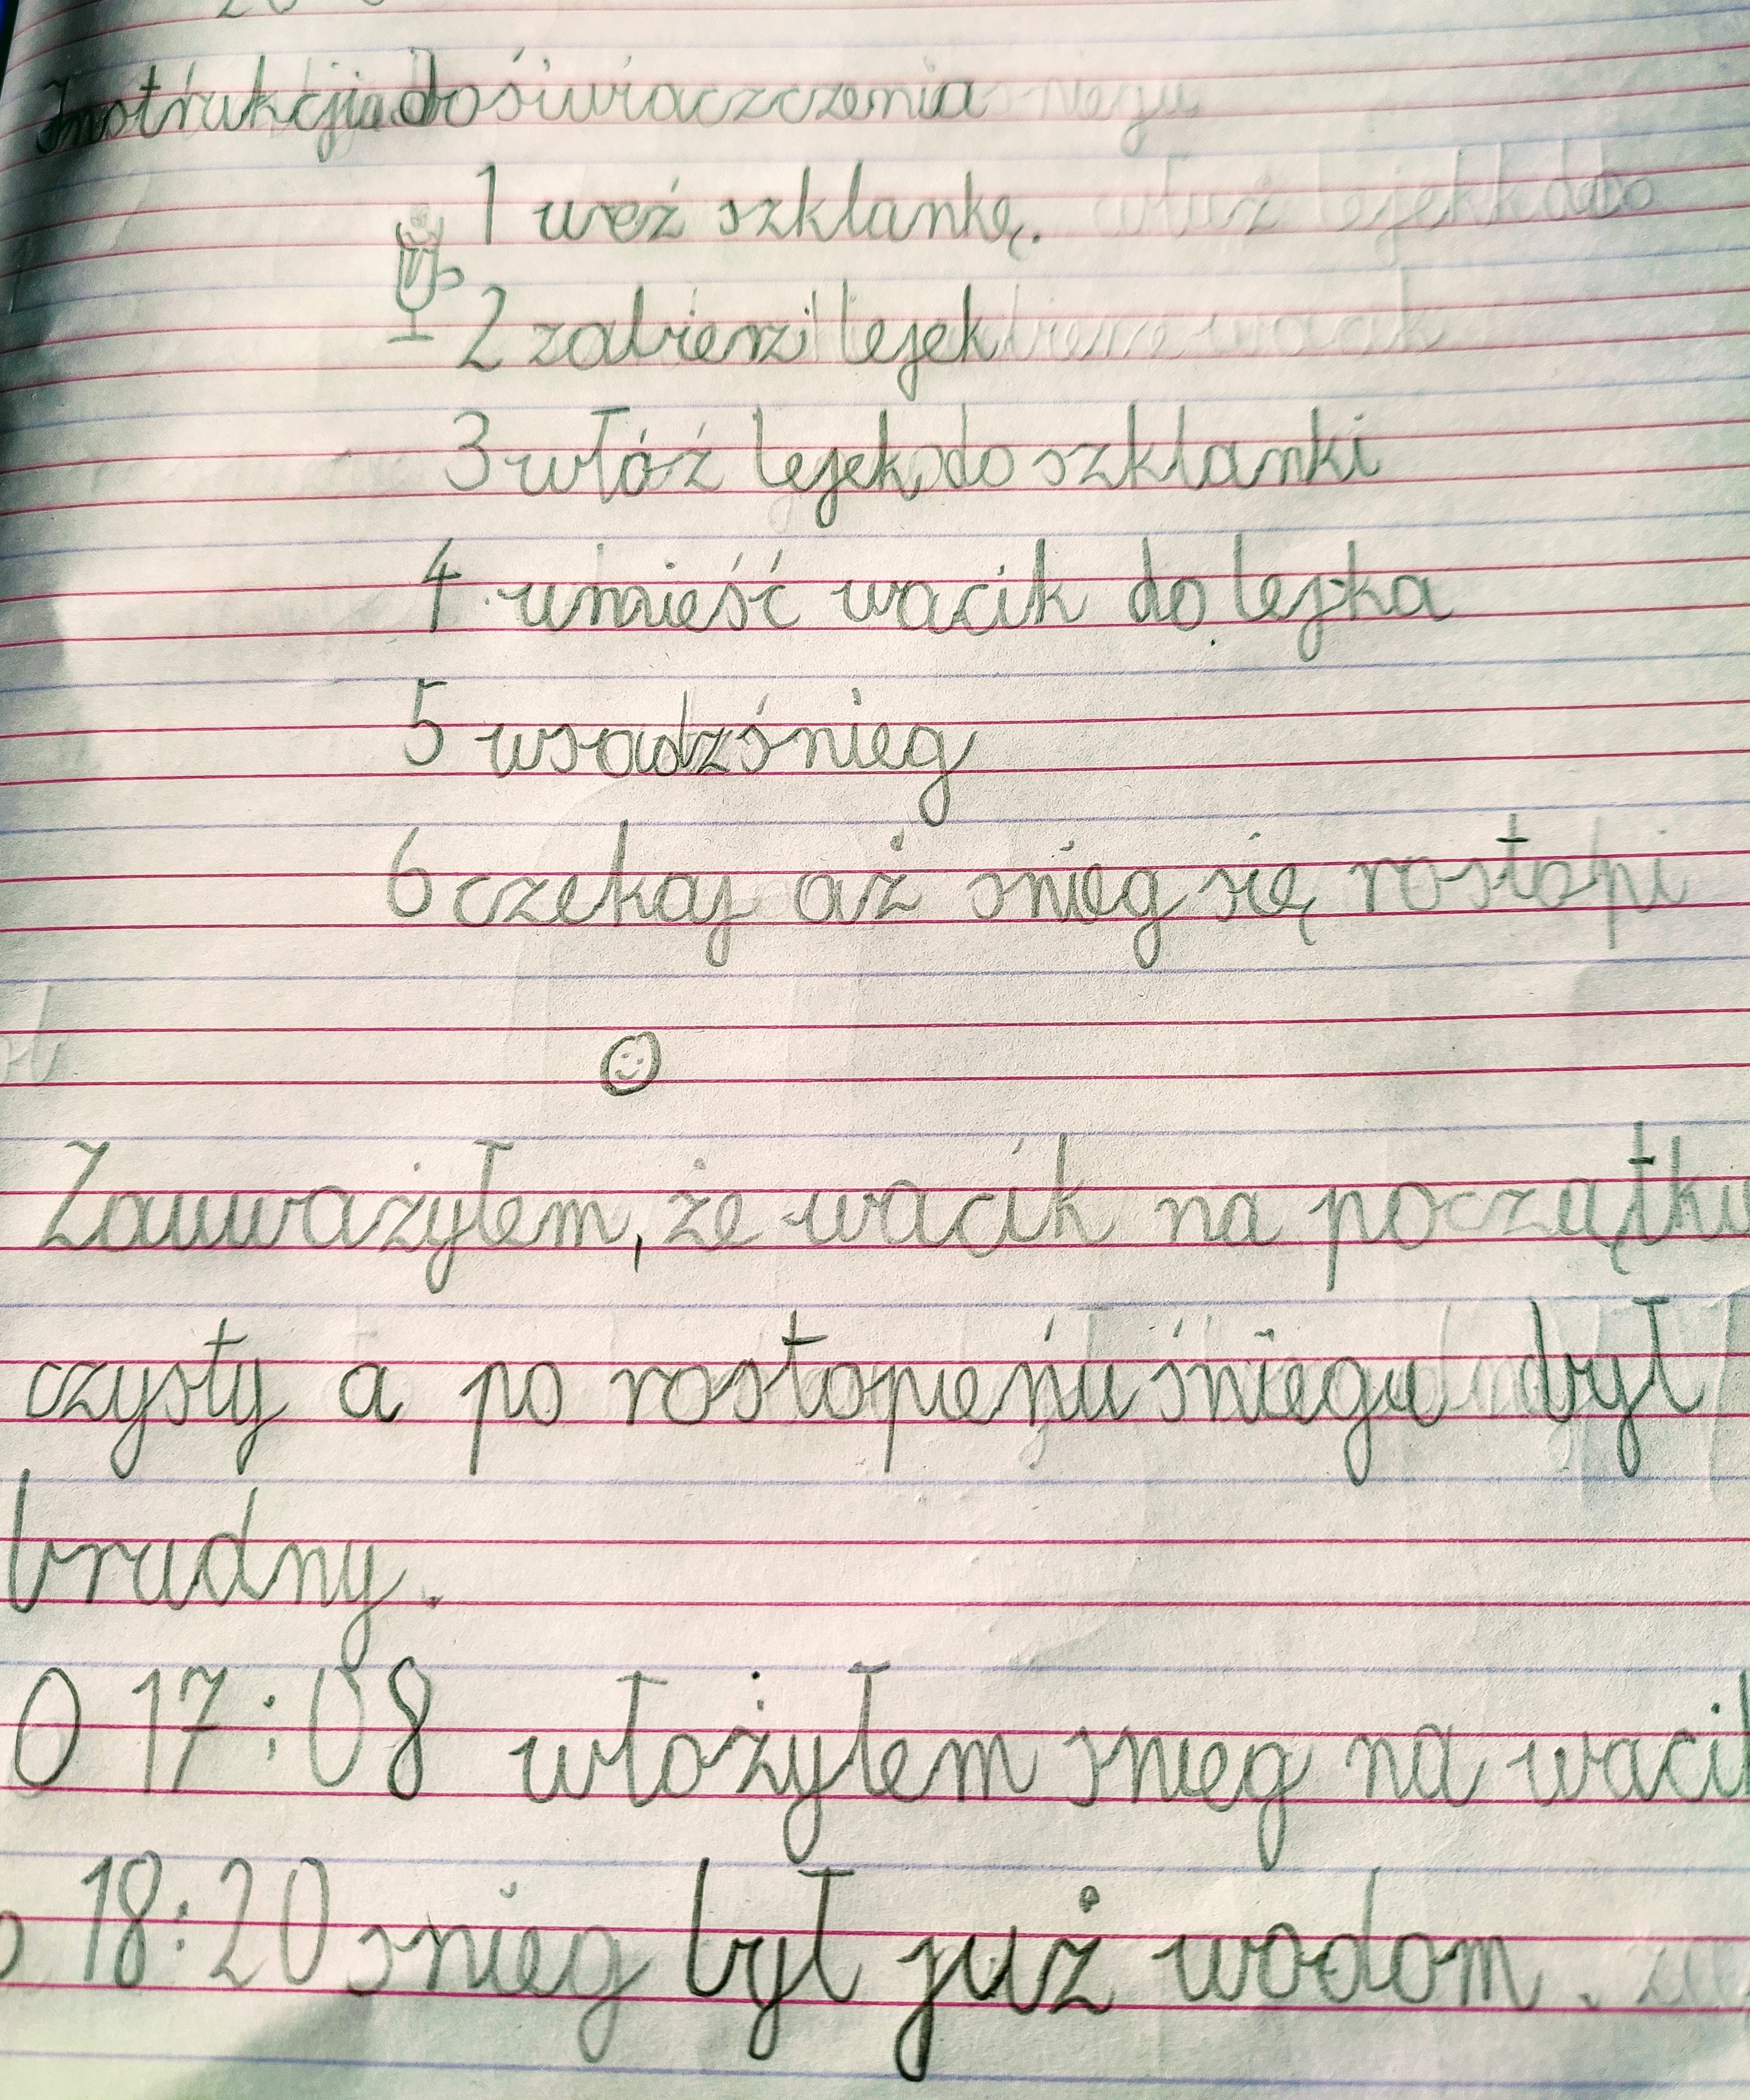 Instrukcja doświaczczenia
1 weź szklankę.
2 zabierzi lejek
3 włóź lejek do szklanki
4 umieść wacik do lejka
5 wsadz śnieg
6 czekaj aż snieg się rostopi
Zauważyłem, że wacik na początku
czysty a po rostopieńu śniegu był
brudny.
O 17:08 włożyłem snieg na wacik
o 18:20 snieg był już wodom.